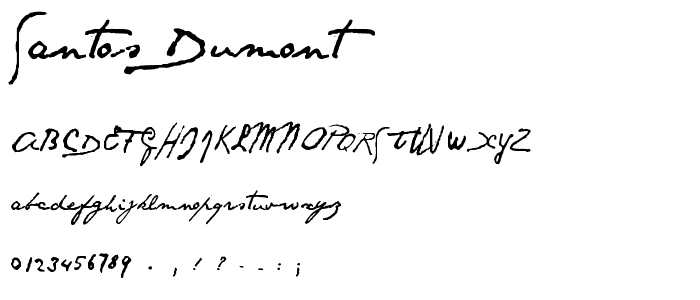 Santos Dumont
ABCDEFGHIJKLMNOPQRSTUVWXYZ
abcdefghijklmnopqrstuvwxyz
0123456789 . , ! ? - _ : ;